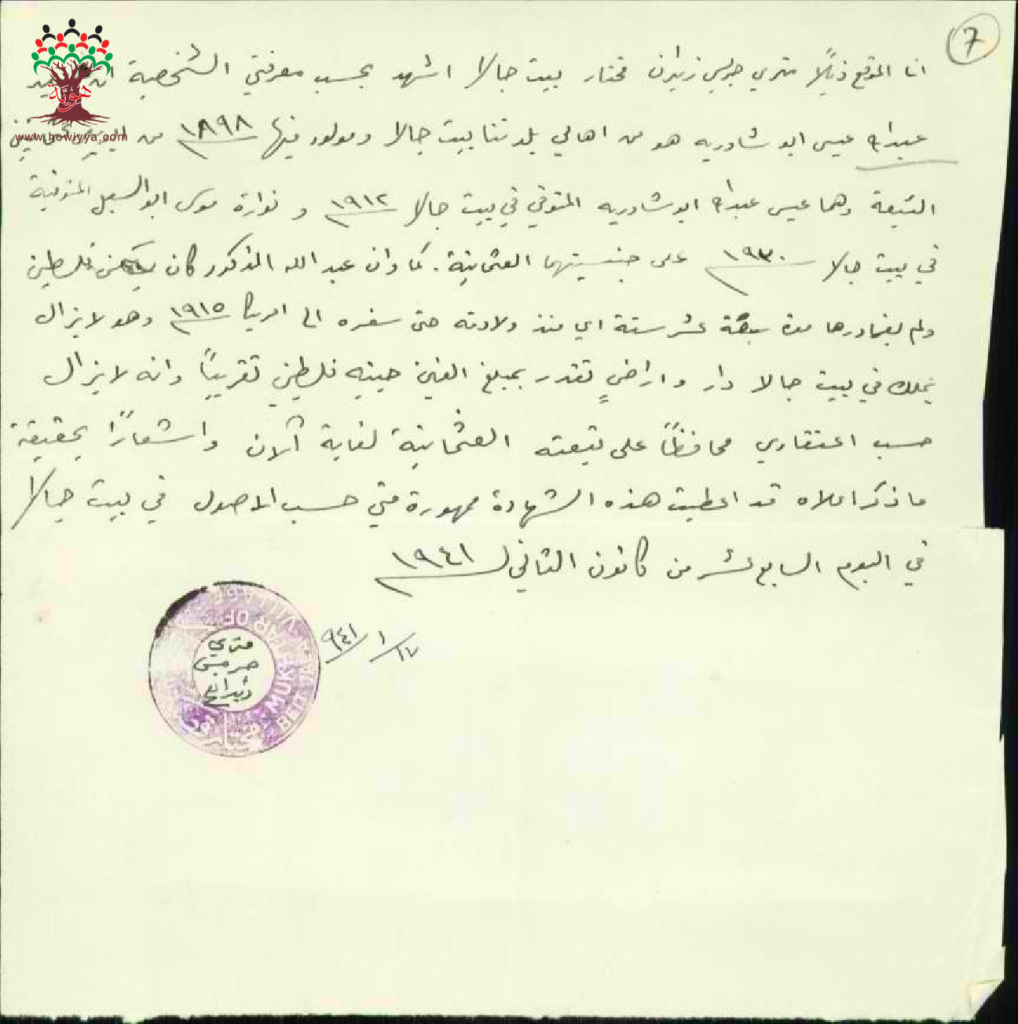 ٧
انا الموقع ذيلًا متري جريس زيدان مختار بيت جالا اشهد بحسب معرفتي الشخصية ان
www.howiyya.com
عبدالله عيسى ابو شاوريه هو من اهالي بلدتنا بيت جالا ومولود فيها ١٨٩٨ من
التبعة وهما عيسى عبدالله ابو شاوريه المتوفي في بيت جالا ١٩١٢ و نوارة موسى ابو السبل المتوفية
في بيت جالا ١٩٣٠ على جنسيتهما العثمانية. كما وان عبد الله المذكور كان يسكن فلسطين
ولم يغادرها مدة سبعة عشر سنة اي منذ ولادته حتى سفره الى امريكا ١٩١٥ وهو لا يزال
يملك في بيت جالا دار واراضٍ تقدر بمبلغ الفين جنيه فلسطيني تقريباً وانه لا يزال
حسب اعتقادي محافظاً على تبعته العثمانية لغاية الآن واشعارًا بحقيقة
ما ذكر اعلاه قد اعطيت هذه الشهادة ممهورة مني حسب الاصول في بيت جالا
في اليوم السابع عشر من كانون الثاني ١٩٤١
١٧/١/٩٤١
متري
جريس
زيدان
MUKHTAR OF
BEIT JALA VILLAGE